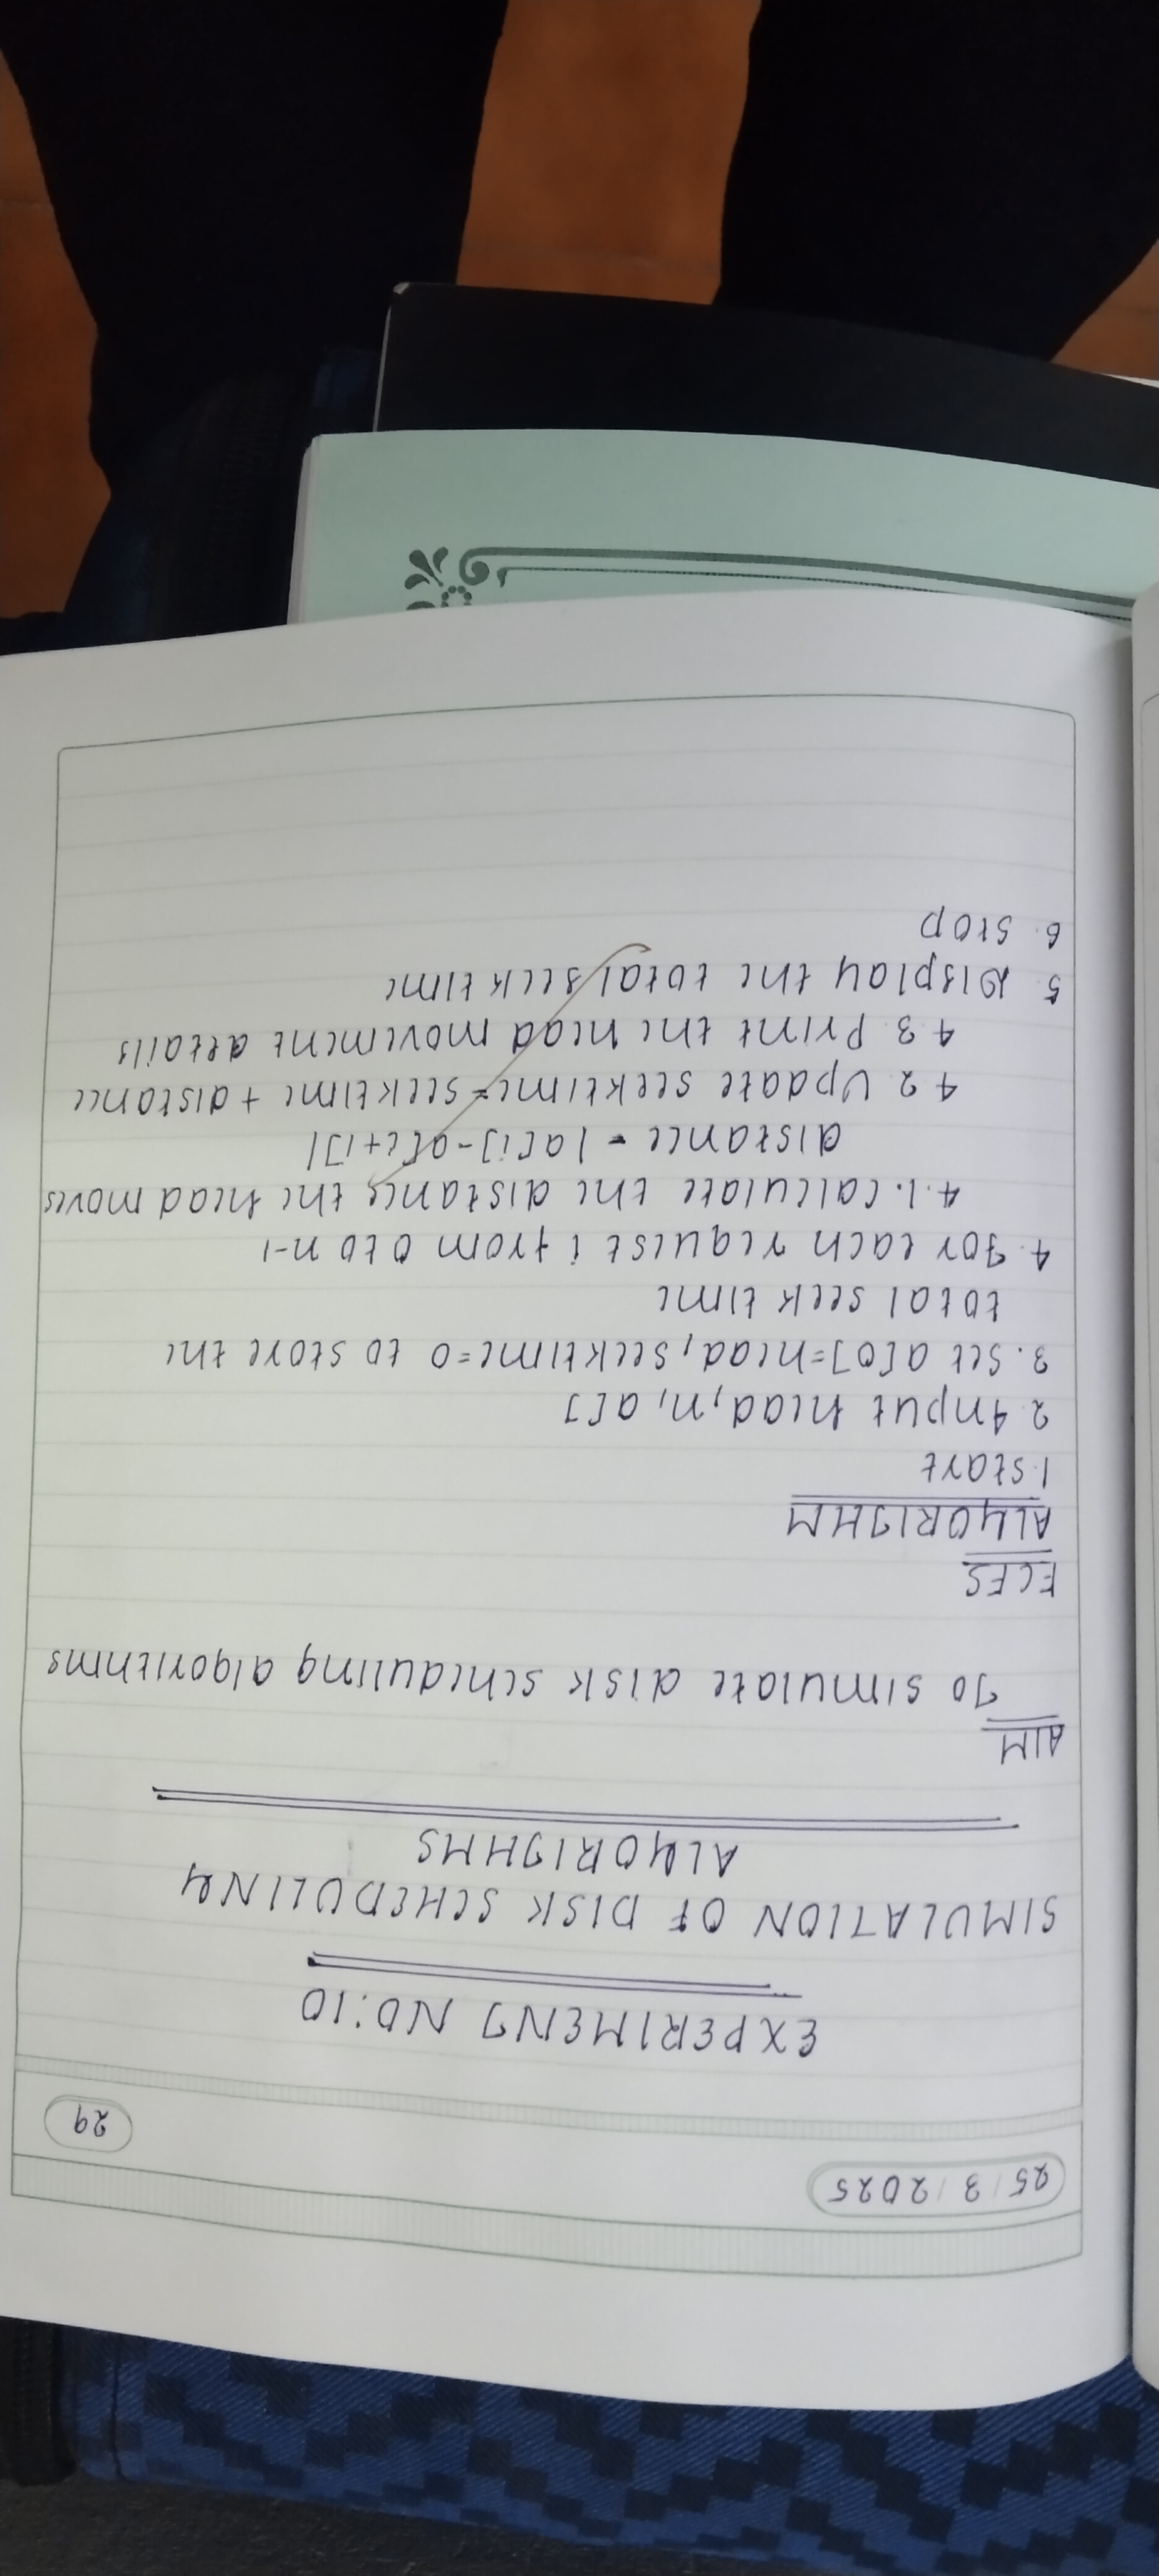 25/3/2025
29
EXPERIMENT NO:10
SIMULATION OF DISK SCHEDULING
ALGORITHMS
AIM
To simulate disk scheduling algorithms
FCFS
ALGORITHM
1. Start
2. Input head, n, a[]
3. Set a[0]=head, seektime=0 to store the
total seek time
4. For each request i from 0 to n-1
4.1. Calculate the distance the head moves
distance = |a[i]-a[i+1]|
4.2. Update seektime=seektime + distance
4.3. Print the head movement details
5. Display the total seek time
6. Stop